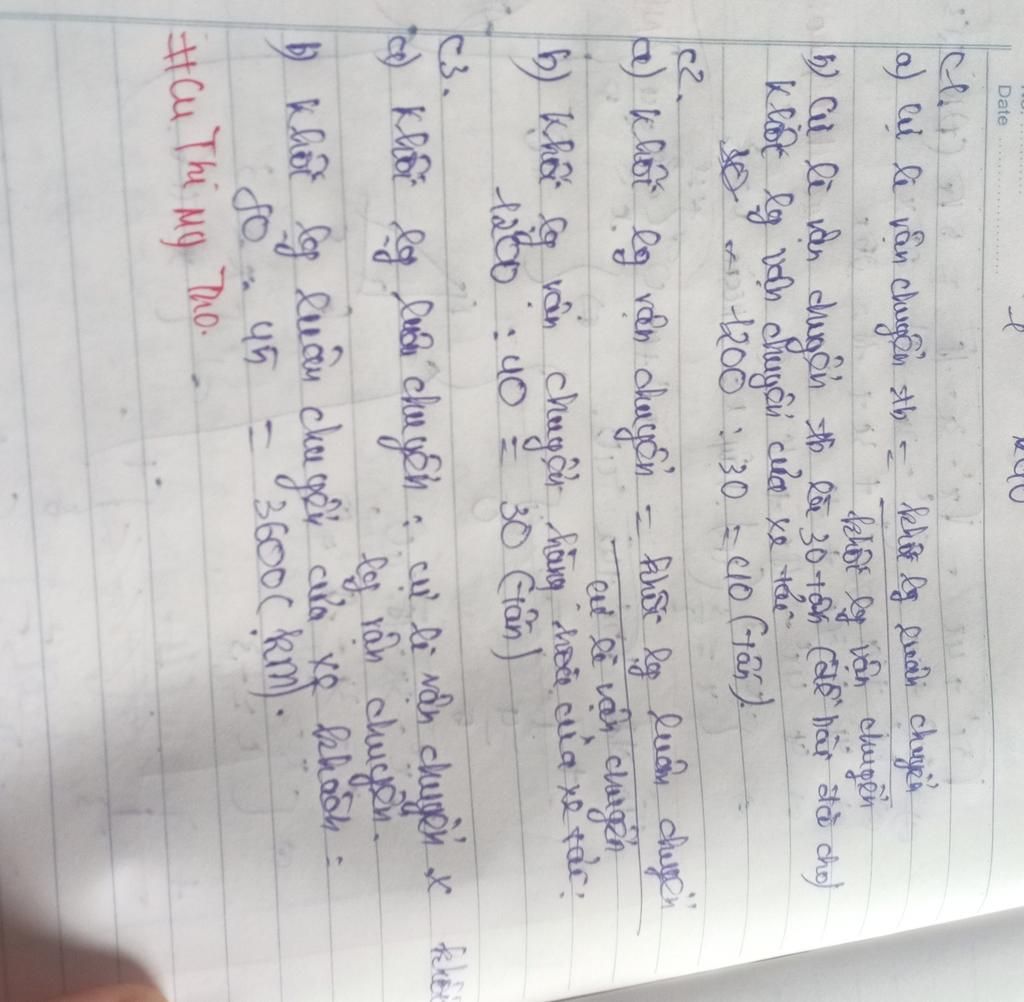 Date
C1.
a) Cự li vận chuyển tb = khối lg luân chuyển
khối lg vận chuyển
b) Cự li vận chuyển tb là 30 tấn (đề bài đã cho)
khối lg vận chuyển của xe tải
1200 : 30 = 40 (tấn).
C2.
a) khối lg vận chuyển = khối lg luân chuyển
cự li vận chuyển
b) khối lg vận chuyển hàng hoá của xe tải:
1200 : 40 = 30 (tấn)
C3.
a) khối lg luân chuyển : cự li vận chuyển x khối
lg vận chuyển.
b) khối lg luân chuyển của xe khách:
80 . 45 = 3600 (km).
#Cu Thi Mg Tho.